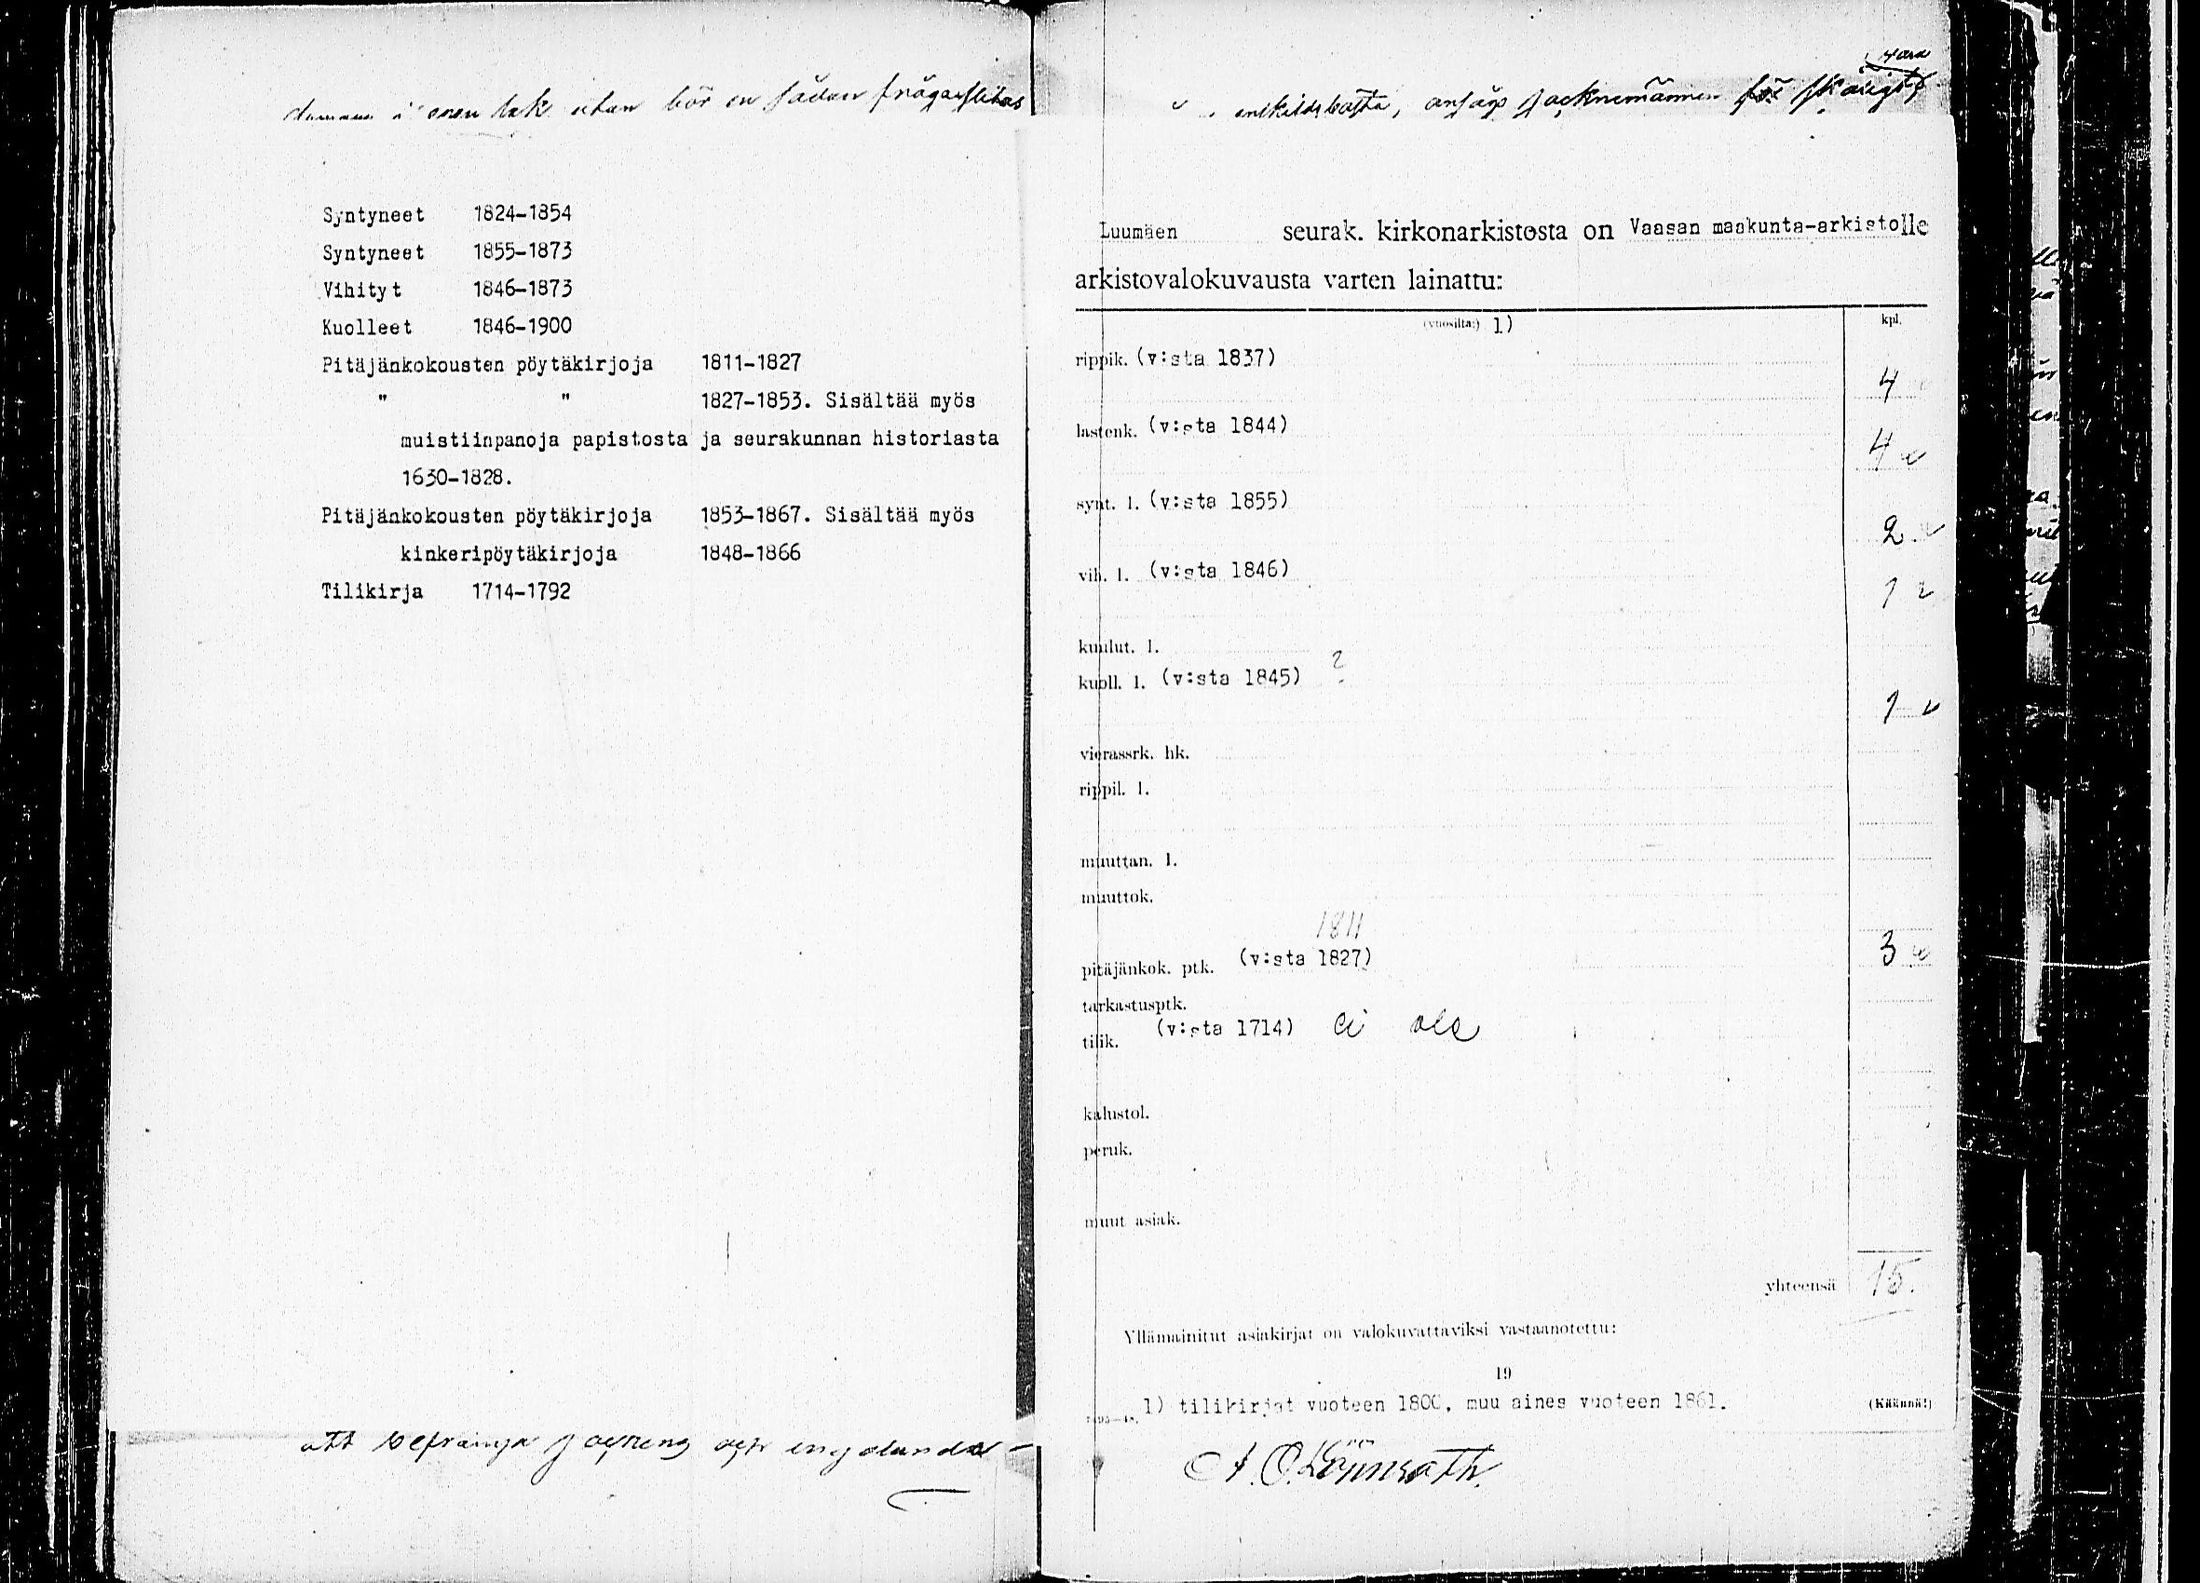 i en tak utan bör en sådan fråga slitas
Syntyneet 1824-1854
Syntyneet 1855-1873
Vihityt 1846-1873
Kuolleet 1846-1900
Pitäjänkokousten pöytäkirjoja 1811-1827
" " 1827-1853. Sisältää myös
muistiinpanoja papistosta ja seurakunnan historiasta
1630-1828.
Pitäjänkokousten pöytäkirjoja 1853-1867. Sisältää myös
kinkeripöytäkirjoja 1848-1866
Tilikirja 1714-1792
att
vara
ansågs Socknemännen för skäligt
Luumäen seurak. kirkonarkistosta on Vaasan maakunta-arkistolle
arkistovalokuvausta varten lainattu:
(vuosilta:) 1) kpl.
rippik. (v:sta 1837)
4
lastenk. (v:sta 1844)
4 v
synt. l. (v:sta 1855)
2 v
vih. l. (v:sta 1846)
1 v
kuulut. l.
kuoll. l. (v:sta 1845) ?
1 v
vierassrk. hk.
rippil. l.
muuttan. l.
muuttok.
1811
pitäjänkok. ptk. (v:sta 1827) 3 v
tarkastusptk.
tilik. (v:sta 1714) ei ole
kalustol.
peruk.
muut asiak.
yhteensä 15.
Yllämainitut asiakirjat on valokuvattaviksi vastaanotettu:
19
1) tilikirjat vuoteen 1800, muu aines vuoteen 1861. (Käännä!)